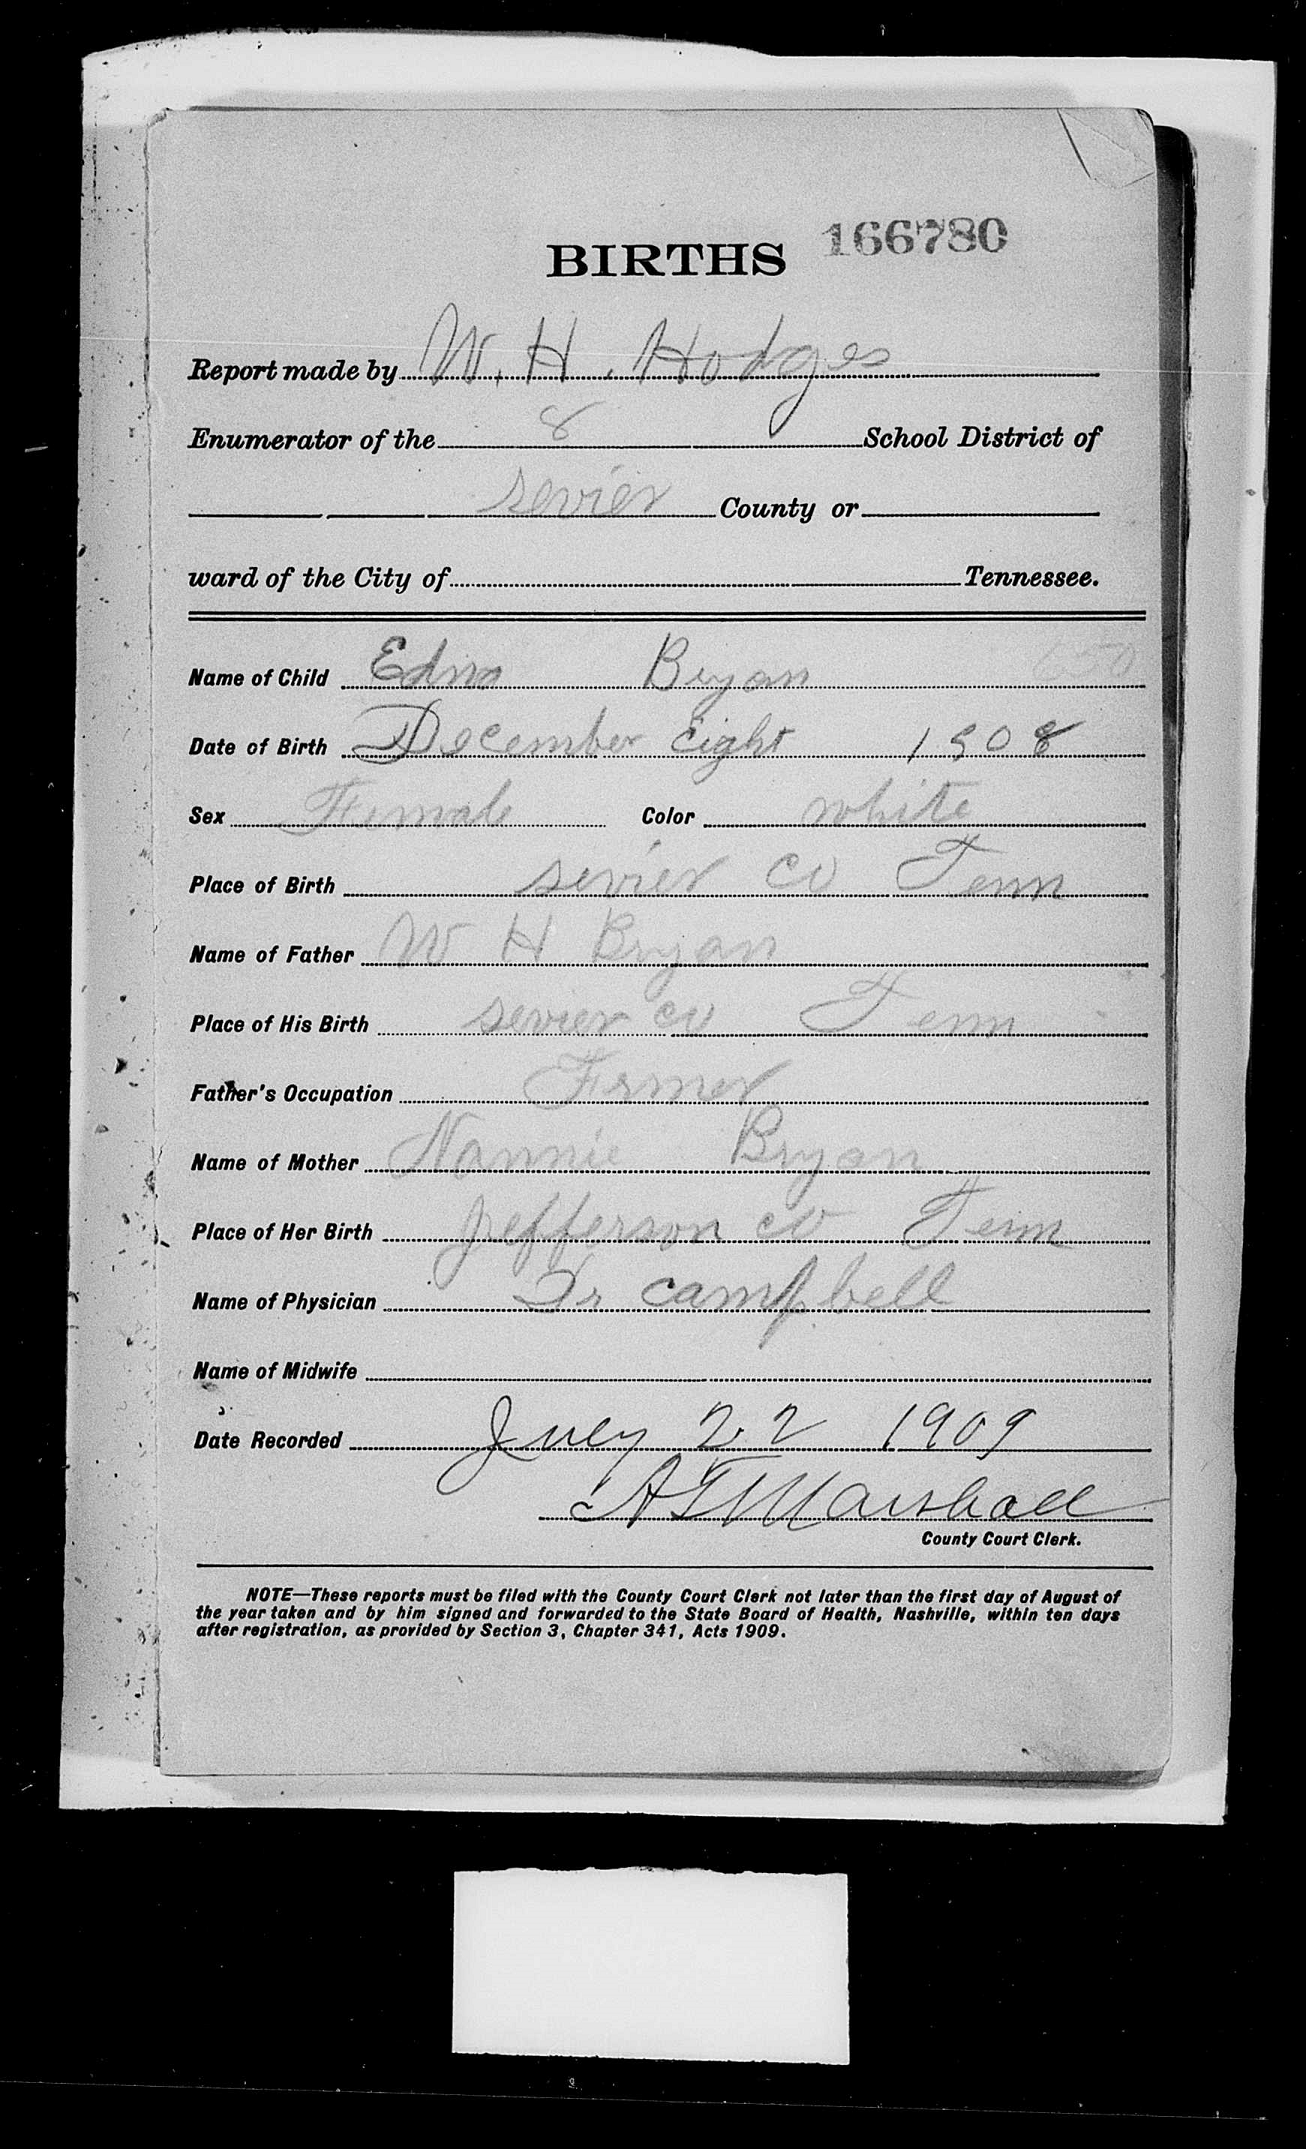 BIRTHS 166780
Report made by W. H. Hodges
Enumerator of the 8 School District of
sevier County or
ward of the City of Tennessee.
Name of Child Edna Bryan 650
Date of Birth December Eight 1908
Sex Female Color white
Place of Birth sevier co Tenn
Name of Father W H Bryan
Place of His Birth sevier co Tenn
Father's Occupation Frmer
Name of Mother Nannie Bryan
Place of Her Birth Jefferson co Tenn
Name of Physician Dr campbell
Name of Midwife
Date Recorded July 22 1909
A T Marshall
County Court Clerk.
NOTE—These reports must be filed with the County Court Clerk not later than the first day of August of
the year taken and by him signed and forwarded to the State Board of Health, Nashville, within ten days
after registration, as provided by Section 3, Chapter 341, Acts 1909.